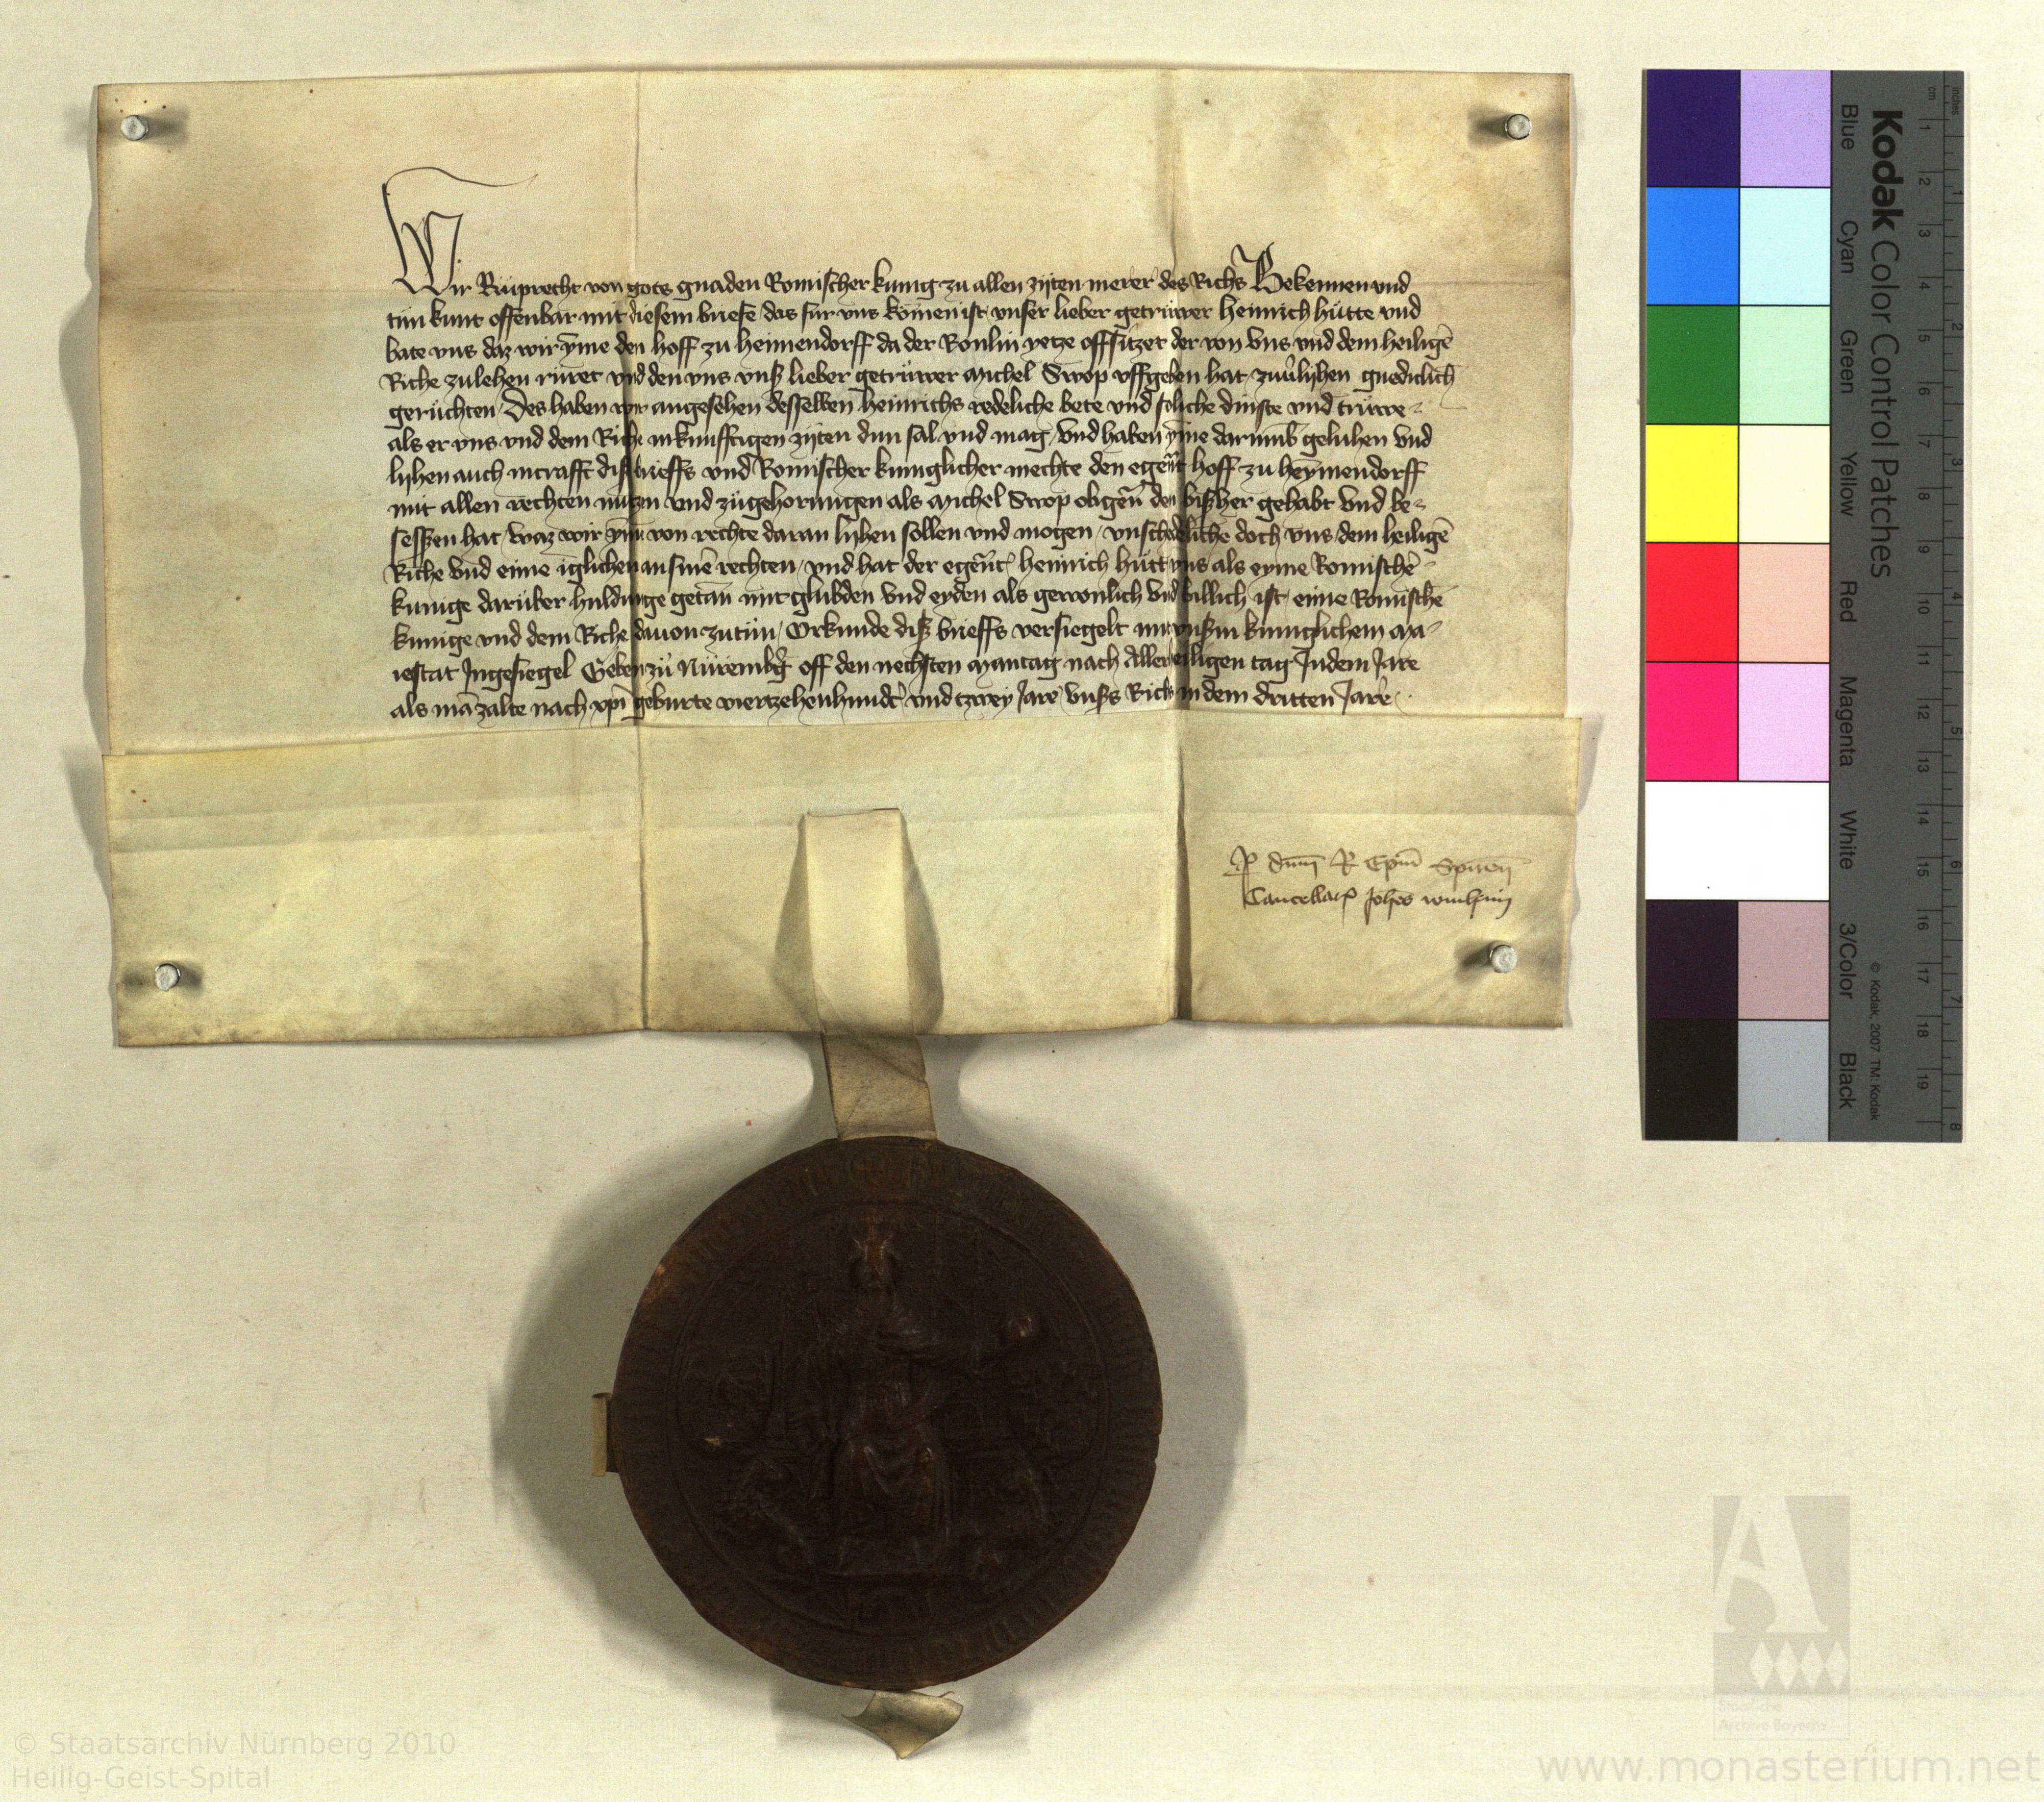 Wir Rüprecht von gots gnaden Romischer kunig zu allen zijten merer des Richs Bekennen und
tun kunt offenbar mit diesem briefe das fur uns komen ist unser lieber getruwer Heinrich hutte und
bate uns daz wir yme den hoff zu heimendorff da der Ronlin yetze offsitzet der von uns und dem heiligē
Riche zulehen ruret und den uns unß lieber getruwer Michel Swop uffgeben hat zuulijhen gnediclich
geruchten Des haben wir angesehen desselben heinrichs redeliche bete und soliche dinste und truwe
als er uns und dem Riche in kunfftigen zijten dun sal und mag und haben yme darumb geluhen und
lijhen auch in crafft diß brieffs und Romischer kuniglicher mechte den egent hoff zu heymendorff
mit allen rechten nutzen und zugehorungen als Michel Swop obgen den bißher gehabt und be-
sessen hat waz wir ym von rechte daran lijhen sollen und mogen unschedeliche doch uns dem heiligē
Riche und eime iglichen an sinē rechten und hat der egent heinrich hutt uns als eyme Romischē
kunige daruber huldunge getan mit glubden und eyden als gewonlich und billich ist eime Romischē
kunige und dem Riche davon zutun Orkunde diß brieffs versiegelt mit unßm kuniglichem Ma-
iestat Ingesiegel Geben zu Nuremberg off den nechsten Mantag nach Allerheiligen tag In dem Jare
als mā zalte nach xpi geburte viertzehenhundt und tzwey Jare unßs Richs in dem dritten Jare
P dnm R Epm Spiren
Cancellar Johes winheim
Kodak Color Control Patches
Blue Cyan Green Yellow Red Magenta White 3/Color Black
© Kodak, 2007 TM: Kodak
cm 1 2 3 4 5 6 7 8 9 10 11 12 13 14 15 16 17 18 19
inches 1 2 3 4 5 6 7 8
© Staatsarchiv Nürnberg 2010
Heilig-Geist-Spital
www.monasterium.net